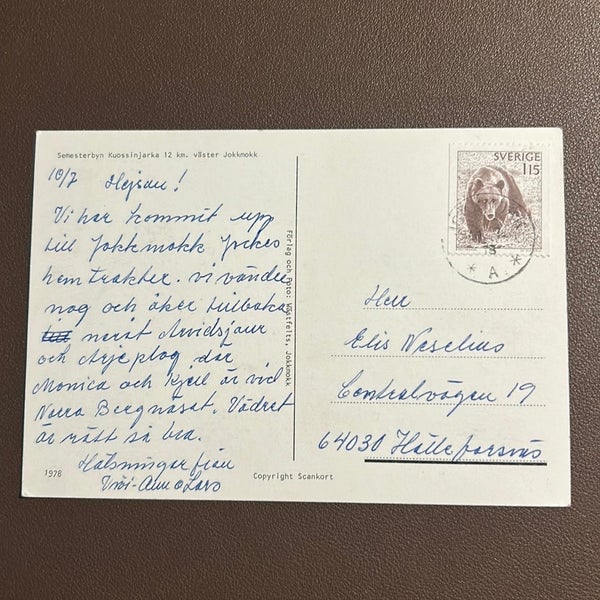 Semesterbyn Kuossinjarka 12 km. väster Jokkmokk
10/7 Hejsan!
Vi har kommit upp
till Jokkmokk Jockes
hemtrakter. vi vänder
nog och åker tillbaka
neråt Arvidsjaur
och Arjeplog där
Monica och Kjell är vid
Norra Bergnäset. Vädret
är rätt så bra.
Hälsningar från
Ann o Lars
1978
Förlag och Foto: Västfelts, Jokkmokk
Copyright Scankort
SVERIGE
115
13
* A *
Herr
Elis Neselius
Centralvägen 19
64030 Hälleforsnäs